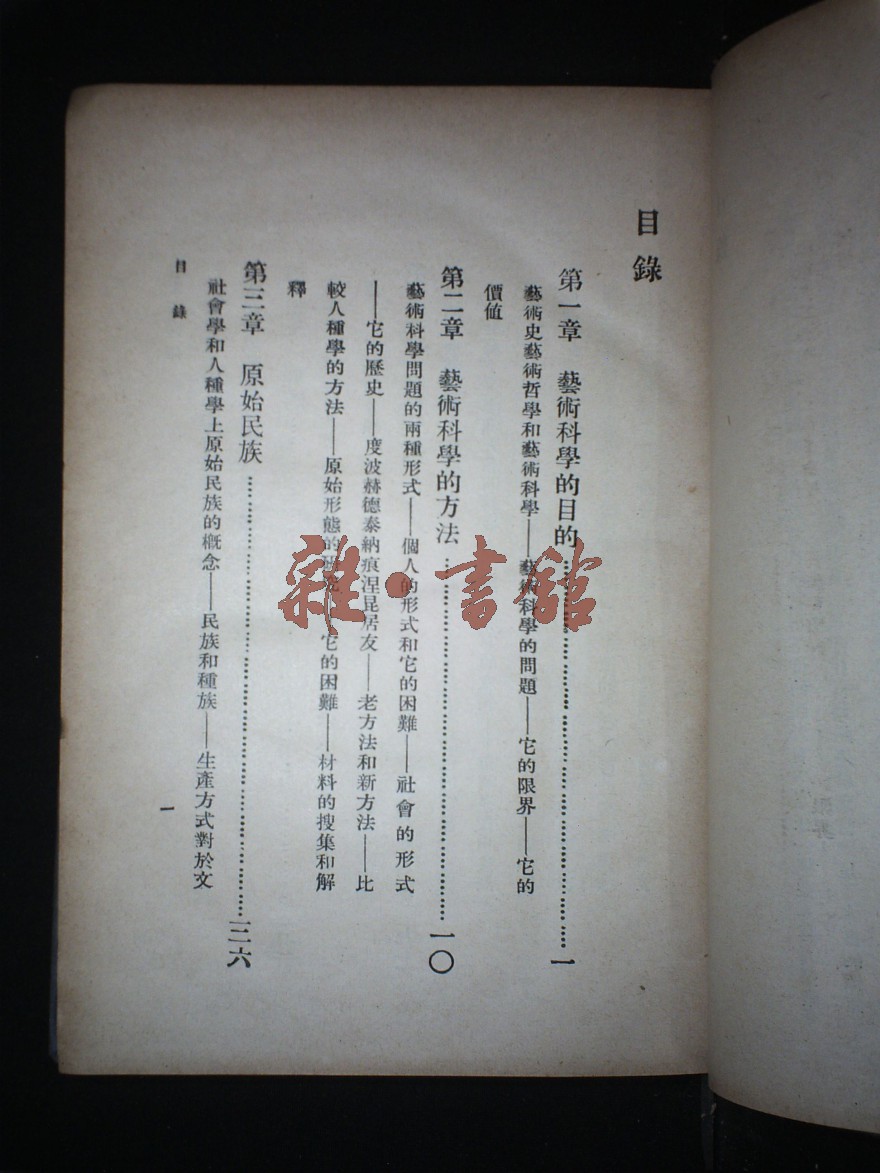 目錄
第一章　藝術科學的目的……一
藝術史藝術哲學和藝術科學——藝術科學的問題——它的限界——它的
價值
第二章　藝術科學的方法……一〇
藝術科學問題的兩種形式——個人的形式和它的困難——社會的形式
——它的歷史——度波赫德泰納痕涅昆居友——老方法和新方法——比
較人種學的方法——原始形態的研究——它的困難——材料的搜集和解
釋
第三章　原始民族……三六
社會學和人種學上原始民族的概念——民族和種族——生產方式對於文
目錄
一
雜·書館